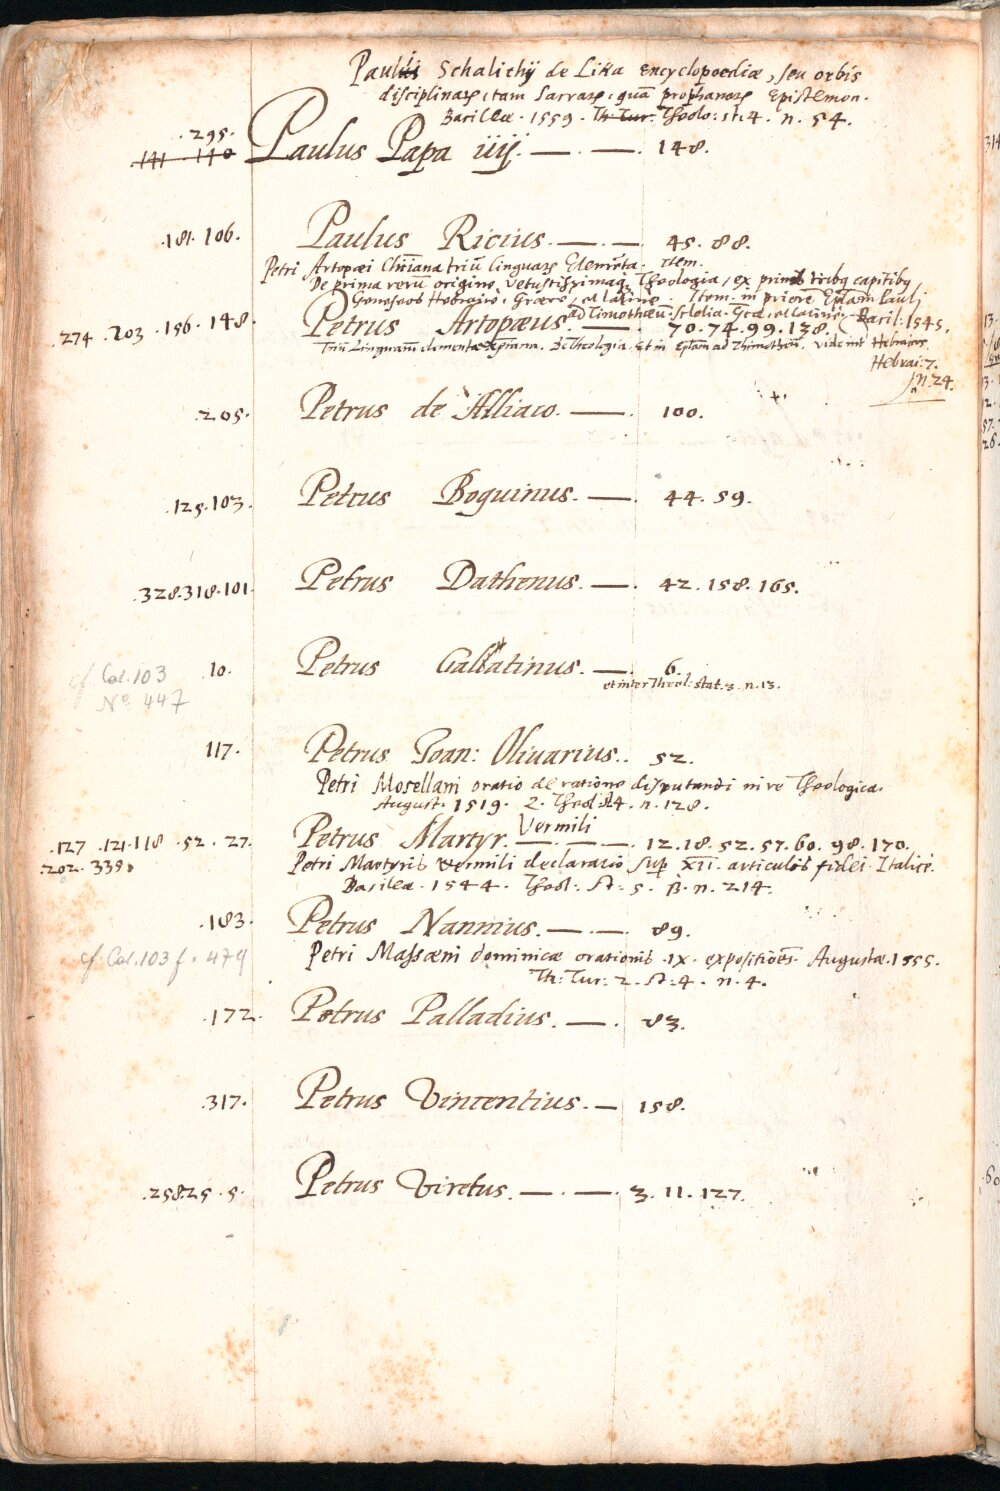 Paulii Schalichij de Lika Encyclopoediæ, seu orbis
disciplinarũ, tam Sacrarũ, quã prophanarũ Epistemon.
Basileæ. 1559. Th: Tur: Theolo: st: 4. n. 54.
.295.
141 140 Paulus Papa iiij. — . — . 148.
.181. 106. Paulus Ricius. — . — . 45. 88.
Petri Artopæi Chr̃iana triũ linguarũ Elemẽta. Item.
De prima rerũ origine, vetustissimaq; Theologia, ex primis tribq capitibq
Geneseos Hebraicè, Græcè, et latinè. Item. in priorẽ Ep̃lam Pauli
ad Timothæũ. scholia. Græ. et Latinè. Basil. 1545.
.274 .203 .156 . 148. Petrus Artopæus. — . 70. 74. 99. 138.
Triũ Linguarũ elementa Xp̃iana. De Theologia. Et in Ep̃lam ad Thimotheũ. vide int̃ Hebraicos.
Hebrai: 7.
n. 24.
.205. Petrus de Alliaco. — . 100.
.125. 103. Petrus Boquinus. — . 44. 59.
.328. 318. 101. Petrus Dathenus. — . 42. 158. 165.
cf. Cod. 103 .10. Petrus Gallatinus. — . 6.
Nº 447 et inter Theol: stat. 3. n. 13.
117. Petrus Joan: Olivarius.. 52.
Petri Mosellani oratio de ratione disputandi in re Theologica.
August. 1519. 2. Theol. st 4. n. 128.
Vermili
.127 .121. 118 . 52 . 27. Petrus Martyr. — . — . — . 12. 18. 52. 57. 60. 98. 170.
.202. 339. Petri Martyris Vermili declaratio sup̱ XII. articulos fidei. Italicè.
Basileæ. 1544. Theol: St: 5. β. n. 214.
.183. Petrus Nannius. — . — . 89.
cf. Cod. 103 f. 479 Petri Massæni dominicæ orationis .IX. expositiões. Augustæ. 1555.
Th: Tur: 2. St: 4. n. 4.
.172. Petrus Palladius. — . 83.
.317. Petrus Vincentius. — 158.
.258. 25 . 5. Petrus Viretus. — . — . 3. 11. 127.